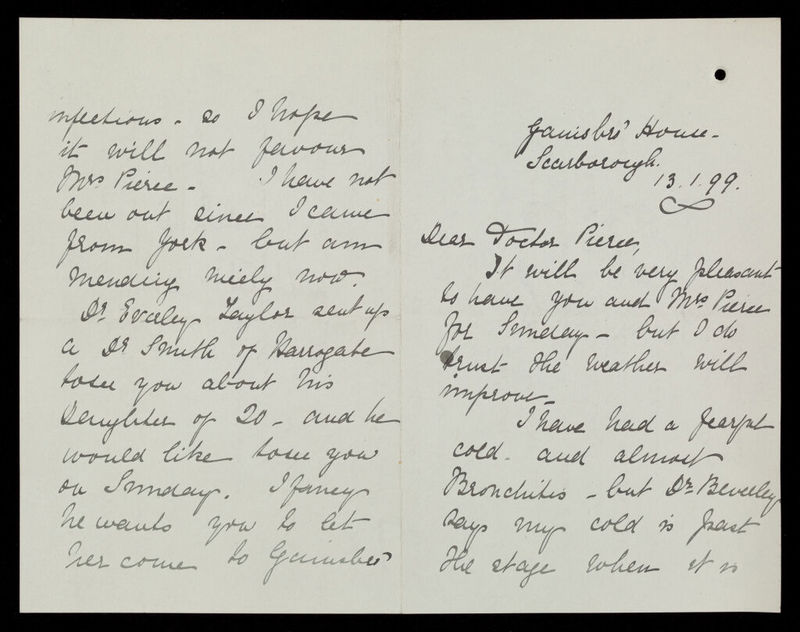 Gainsbro' House -
Scarborough.
13.1.99.
Dear Doctor Pierce,
It will be very pleasant
to have you and Mrs Pierce
for Sunday - but I do
trust the weather will
improve -
I have had a fearful
cold - and almost
Bronchitis - but Dr
says my cold is past
the stage when it is
infectious - so I hope
it will not favour
Mrs Pierce - I have not
been out since I came
from York - but am
mending nicely now.
Dr Taylor sent up
a Dr Smith of Harrogate
to see you about his
Daughter of 20 - and he
would like to see you
on Sunday. I fancy
he wants you to let
her come to Gainsbro'